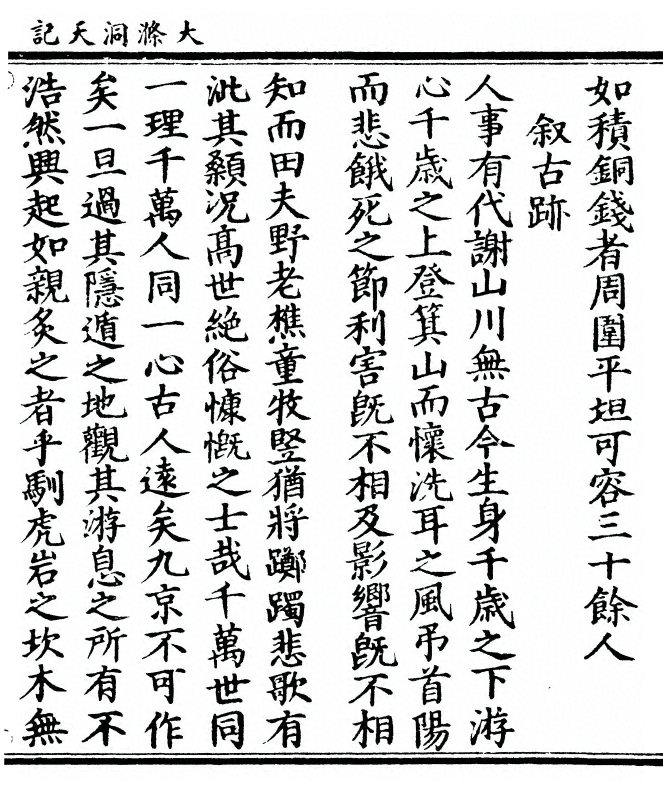 大滌洞天記
如積銅錢者周圍平坦可容三十餘人
叙古跡
人事有代謝山川無古今生身千歳之下游
心千歳之上登箕山而懷洗耳之風弔首陽
而悲餓死之節利害旣不相及影響旣不相
知而田夫野老樵童牧竪猶將躑躅悲歌有
泚其顙况髙世絶俗慷慨之士哉千萬世同
一理千萬人同一心古人遠矣九京不可作
矣一旦過其隱遁之地觀其游息之所有不
浩然興起如親炙之者乎馴虎岩之坎木無